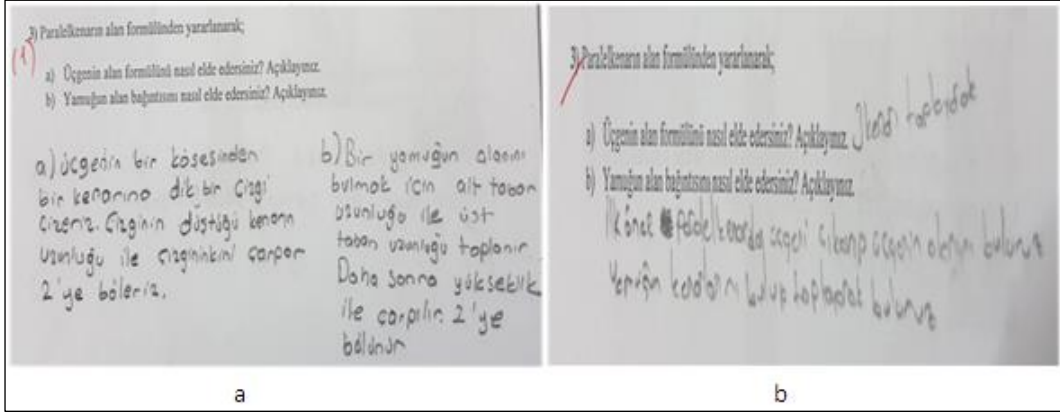 3) Paralelkenarın alan formülünden yararlanarak;
(1)
a) Üçgenin alan formülünü nasıl elde edersiniz? Açıklayınız.
b) Yamuğun alan bağıntısını nasıl elde edersiniz? Açıklayınız.
a) üçgenin bir köşesinden
bir kenarına dik bir çizgi
çizeriz. Çizginin düştüğü kenarın
uzunluğu ile çizgininkini çarpar
2'ye böleriz.
b) Bir yamuğun alanını
bulmak için alt taban
uzunluğu ile üst
taban uzunluğu toplanır
Daha sonra yükseklik
ile çarpılır. 2'ye
bölünür
a
3) Paralelkenarın alan formülünden yararlanarak;
a) Üçgenin alan formülünü nasıl elde edersiniz? Açıklayınız. toplayarak
b) Yamuğun alan bağıntısını nasıl elde edersiniz? Açıklayınız.
İlk önce üçgeni çıkarıp üçgenin alanını buluruz
bulup toplayarak buluruz
b